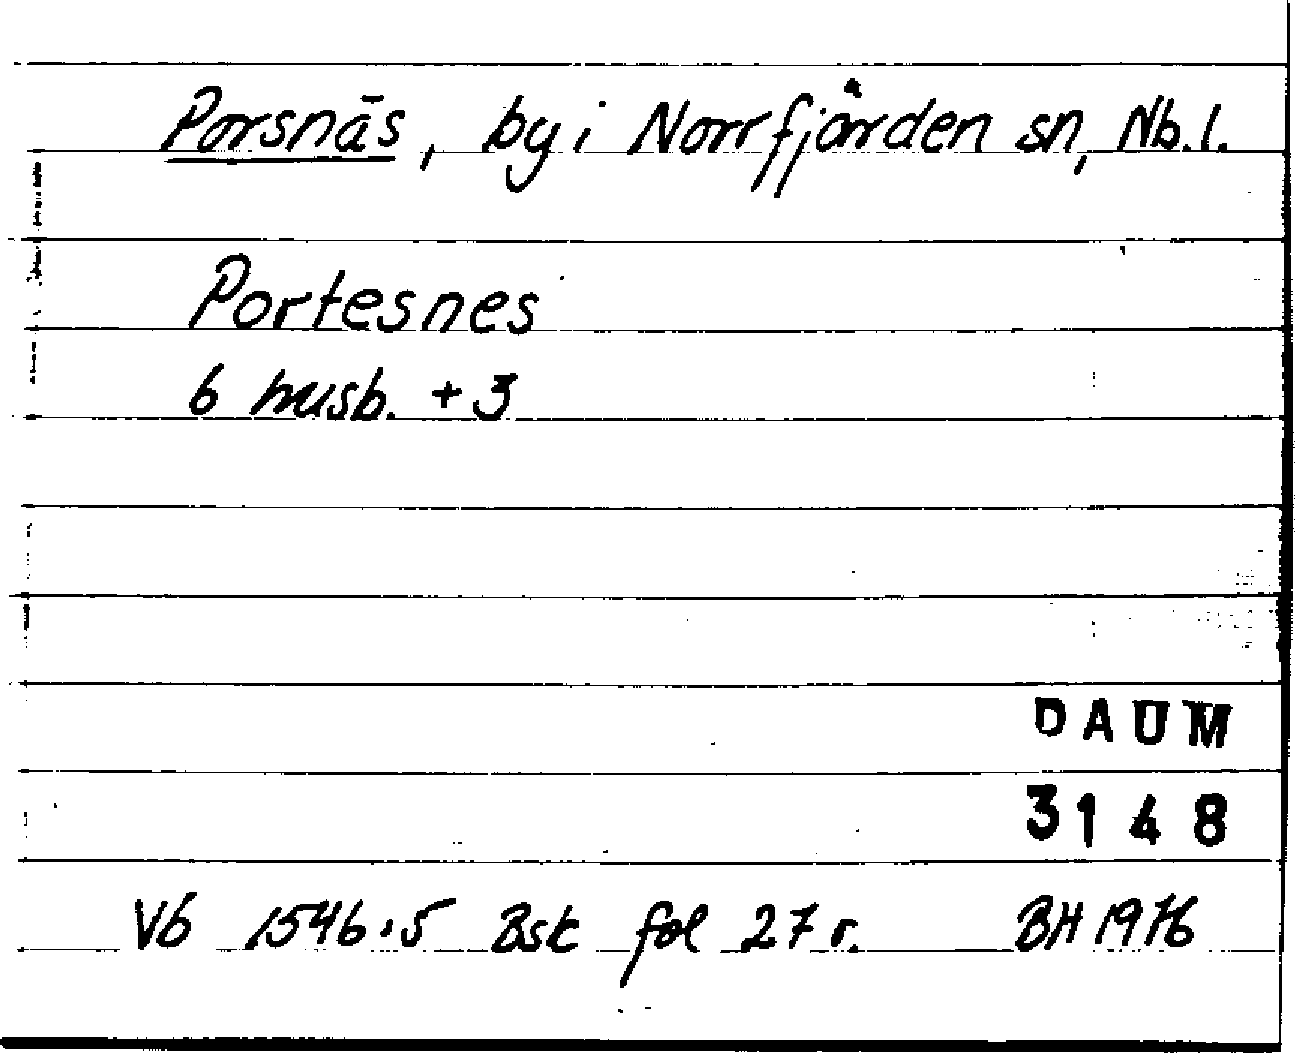 Porsnäs, by i Norrfjärden sn, Nb. l.
Portesnes
6 husb. + 3
DAUM
3148
Vb 1546:5 Bsk fol 27 r. BH 1976